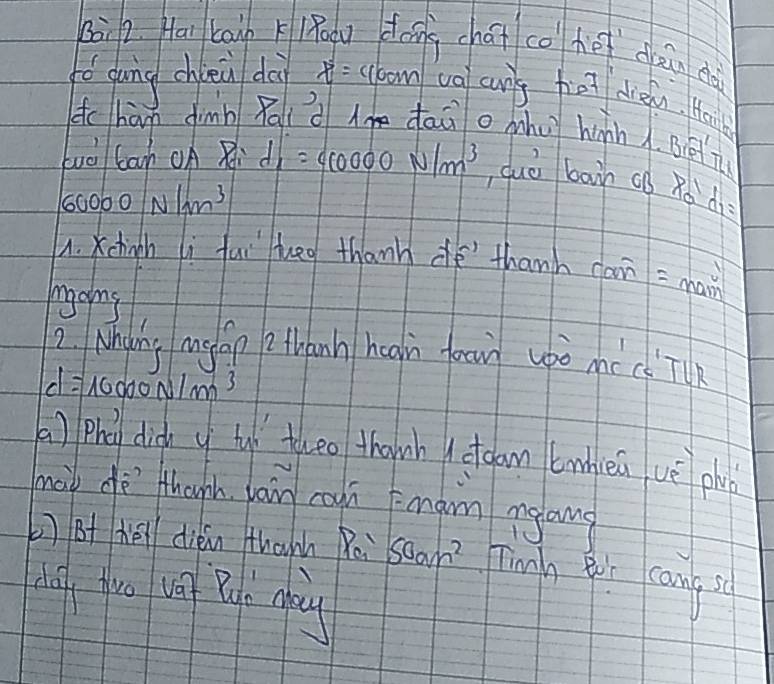 Bài 2. Hai bản K/loại đồng chất có tiết diện đều
có cùng chiều dài l = 40cm và cùng tiết diện. Hai
đc hàn dính lại ở 1 đầu O như hình 1. Biết TLR
của bản OA là d₁ = 40000 N/m³, của bản OB là d₂ =
60000 N/m³
1. Xđịnh vị trí treo thanh để thanh cân = nằm
ngang
2. Nhúng ngập 2 thanh hoàn toàn vào nc có TLR
d = 10000N/m³
a) Phải dịch vị trí treo thanh 1 đoạn bnhiêu, về phía
nào để thanh vẫn cân = nằm ngang
b) Bt tiết diện thanh là 50cm². Tính lực căng
dây treo vật lúc này